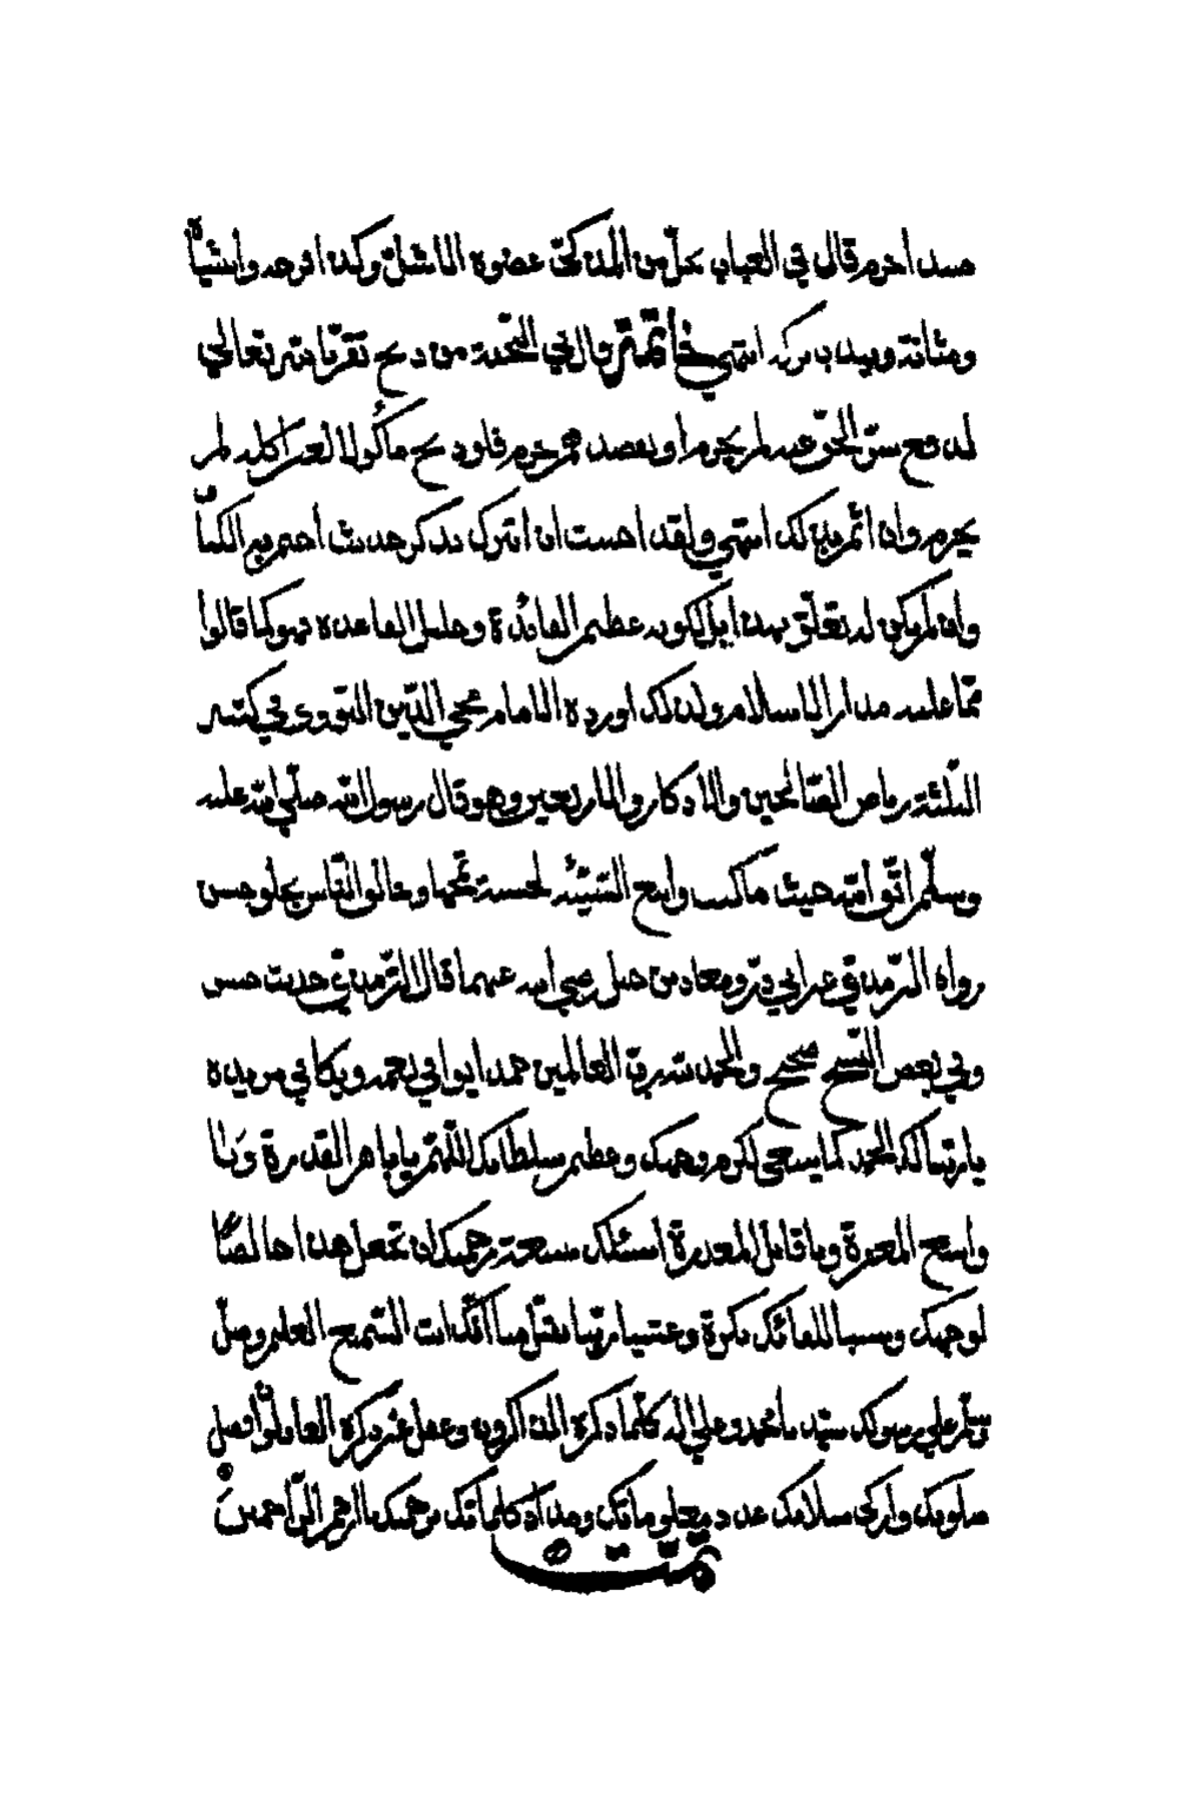 صيد احرم قال في العباب يحل من المذكى عضوه الاشل وكذا فرجه وانثياه
ومثانته ويندب تركه انتهى خاتمة قال في التحفة من ذبح تقربا لله تعالى
لدفع شر الجن عنه لم يحرم او بقصدهم حرم فلو ذبح مأكولا لغير اكله لم
يحرم وان اثم بذلك انتهى ولقد احببت ان اتبرك بذكر حديث اختم به الكتاب
وان لم يكن له تعلق بهذا لكونه عظيم الفائدة وجليل القاعدة فهو كما قالوا
مما عليه مدار الاسلام ولذلك اورده الامام محي الدين النووى في كتبه
الثلثة رياض الصالحين والاذكار والاربعين وهو قال رسول الله صلى الله عليه
وسلم اتق الله حيث ما كنت واتبع السيئة الحسنة تمحها وخالق الناس بخلق حسن
رواه الترمذي عن ابي ذر ومعاذ بن جبل رضي الله عنهما قال الترمذي حديث حسن
وفي بعض النسخ صحيح والحمد لله رب العالمين حمدا يوافي نعمه ويكافي مزيده
يا ربنا لك الحمد كما ينبغي لكرم وجهك وعظيم سلطانك اللهم يا باهر القدرة ويا
واسع المغفرة ويا قابل المعذرة اسئلك بسعة رحمتك ان تجعل هذا خالصا
لوجهك وسببا للقائك ربنا تقبل منا انك انت السميع العليم وصل
وسلم على رسولك سيدنا محمد وعلى اله كلما ذكره الذاكرون وغفل عن ذكره الغافلون افضل
صلوتك وازكى سلامك عدد معلوماتك ومداد كلماتك برحمتك يا ارحم الراحمين
تمت